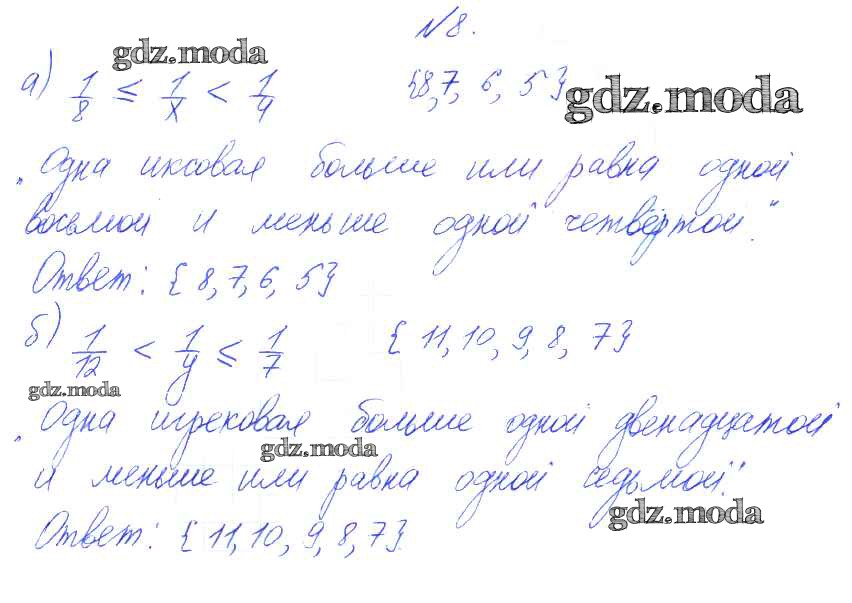 №8.
gdz.moda
а) 1/8 ≤ 1/x < 1/4 {8, 7, 6, 5}
gdz.moda
„Одна иксовая больше или равна одной
восьмой и меньше одной четвёртой."
Ответ: {8, 7, 6, 5}
б) 1/12 < 1/y ≤ 1/7 {11, 10, 9, 8, 7}
gdz.moda
„Одна игрековая больше одной двенадцатой
gdz.moda
и меньше или равна одной седьмой."
gdz.moda
Ответ: {11, 10, 9, 8, 7}